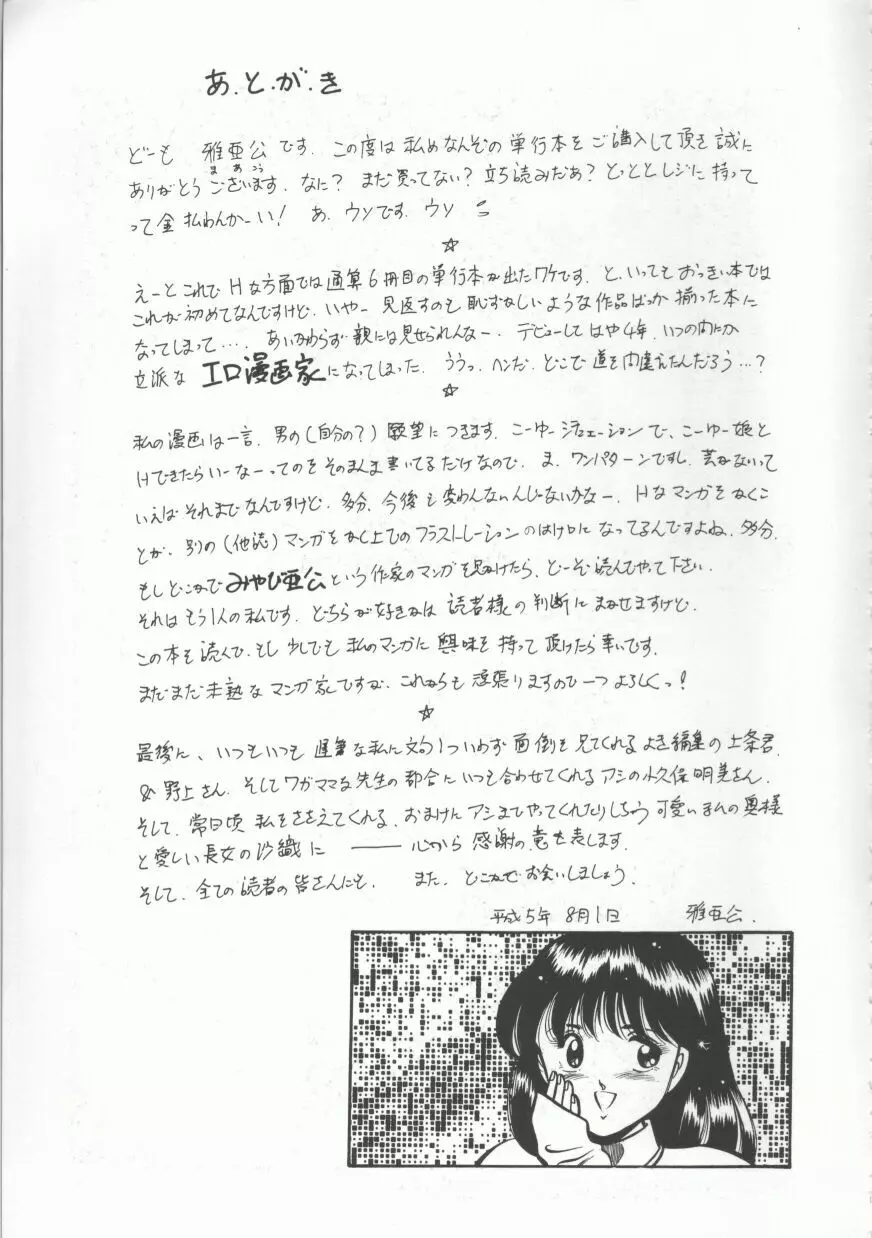 あ.と.が.き
どーも 雅亜公です. この度は私めなんぞの単行本をご購入して頂き誠に
まあこう
ありがとうございます. なに? まだ買ってない? 立ち読みだあ? とっととレジに持って
って金払わんかーい! あ. ウソです. ウソ
☆
えーとこれでHな方面では通算6冊目の単行本が出たワケです. と、いってもおっきい本では
これが初めてなんですけど. いやー 見返すのも恥ずかしいような作品ばっか揃った本に
なってしまって…. あいかわらず親には見せられんなー. デビューしてはや4年. いつの間にか
立派な エロ漫画家になってしまった. ううっ. ヘンだ. どこで道を間違えたんだろう…?
☆
私の漫画は一言. 男の(自分の?)願望につきます. こーゆーシチュエーションで、こーゆー娘と
Hできたらいーなーってのをそのまんま書いてるだけなので. ま. ワンパターンですし. 芸がないって
いえばそれまでなんですけど. 多分. 今後も変わんないんじゃないかなー. Hなマンガをかくこ
とが. 別の(他誌)マンガをかく上でのフラストレーションのはけ口になってるんですよね. 多分.
もしどこかで みやび亜公 という作家のマンガを見かけたら、どーぞ読んでやって下さい.
それはもう1人の私です. どちらが好きかは 読者様の判断にまかせますけど.
この本を読んで. もし少しでも私のマンガに興味を持って頂けたら幸いです.
まだまだ未熟なマンガ家ですが. これからも頑張りますので一つよろしくっ!
☆
最後に、いつもいつも遅筆な私に文句1ついわず面倒を見てくれるよき編集の上条君.
& 野上さん. そしてワガママな先生の都合にいつも合わせてくれるアシの小久保明美さん.
そして. 常日頃私をささえてくれる. おまけにアシまでやってくれたりしちゃう可愛いまんの奥様
と愛しい長女の沙織に ―― 心から感謝の意を表します.
そして. 全ての読者の皆さんにも. また. どこかでお会いしましょう.
平成5年 8月1日 雅亜公.